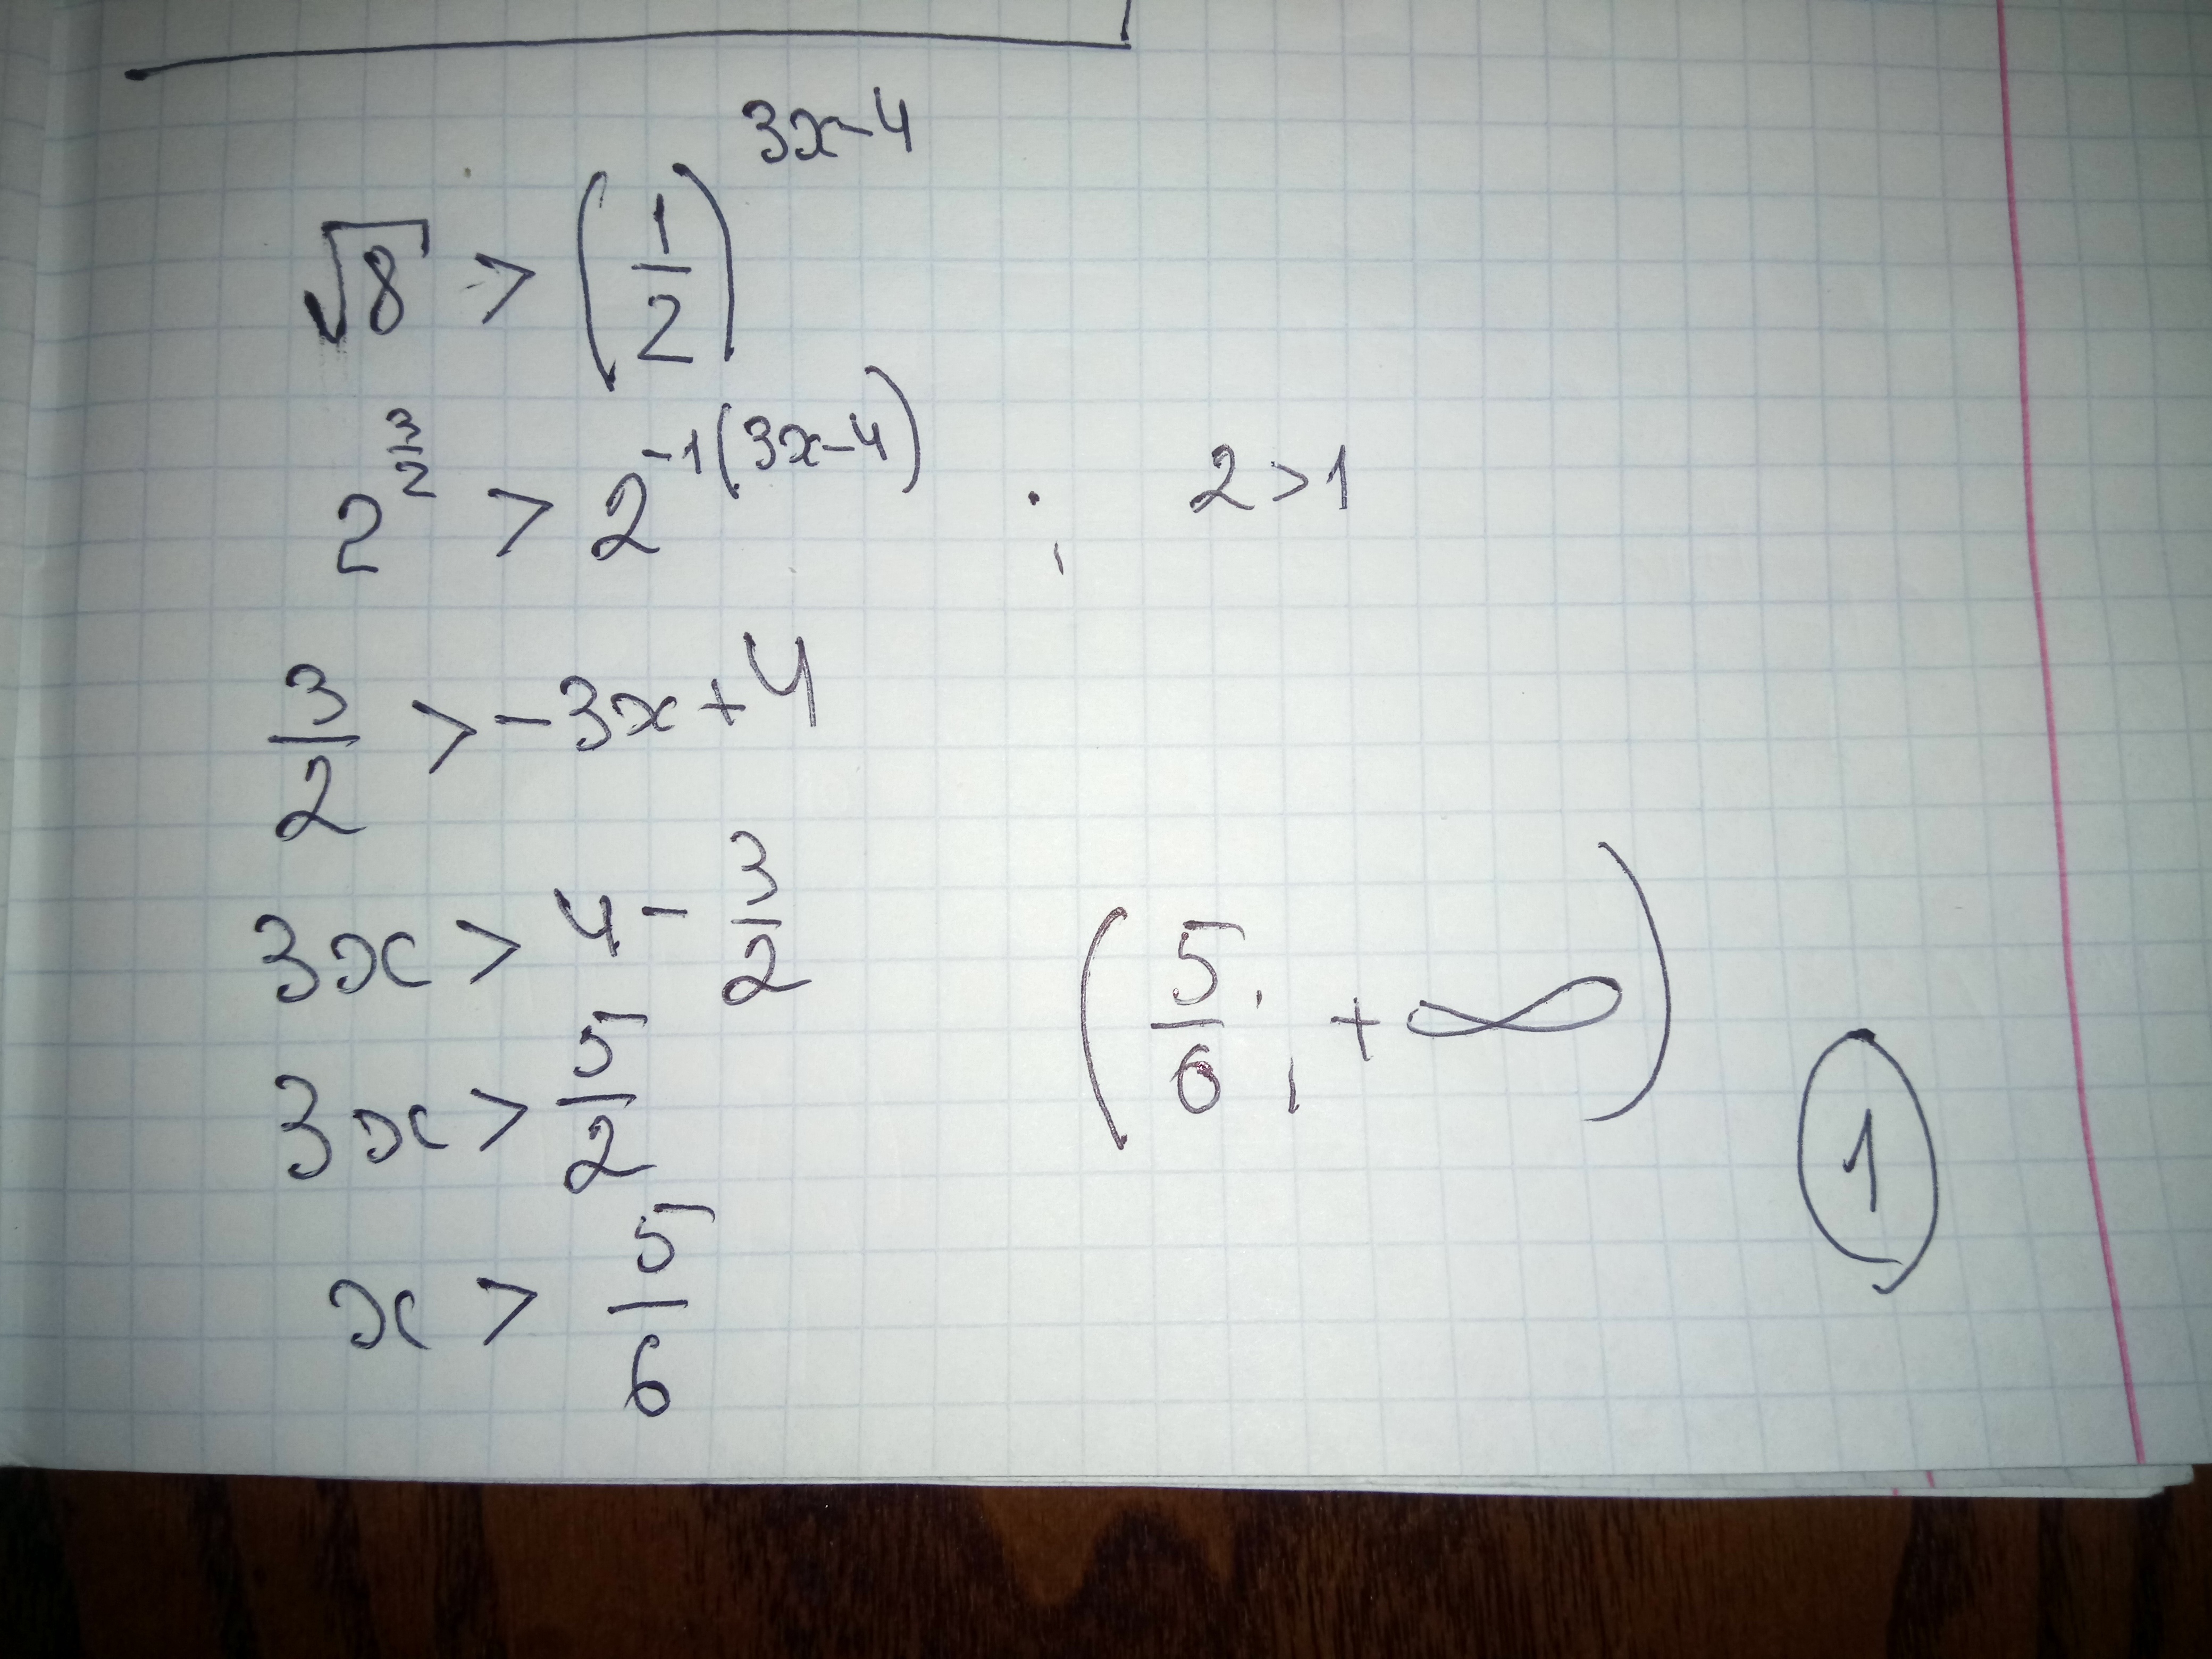 √8 > (1/2)^(3x-4)
2^(3/2) > 2^(-1(3x-4)) ; 2>1
3/2 > -3x+4
3x > 4 - 3/2
3x > 5/2
(5/6 ; +∞)
x > 5/6
1